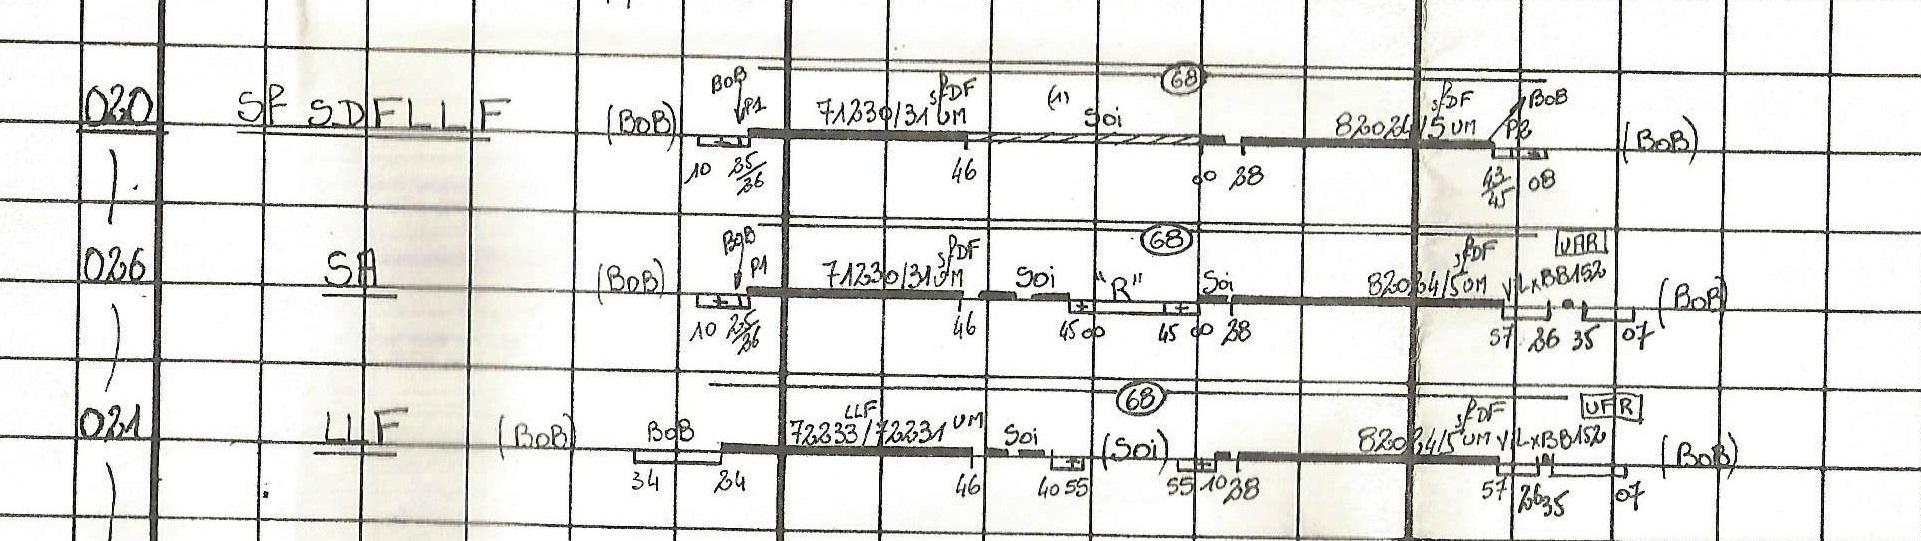 020 SF SDFLLF (BOB) BOB P1 71230/31 UM s/DF (1) Soi 68 82024/5 UM s/DF P2 BOB (BOB)
10 25/26 46 00 28 43/45 08
026 SA (BOB) BOB P1 71230/31 UM s/DF Soi "R" Soi 68 82024/5 UM s/DF VLxBB152 UAR (BOB)
10 25/26 46 45 00 45 00 28 57 26 35 07
021 LLF (BOB) BOB LLF 72233/72231 UM Soi (Soi) 68 82024/5 UM s/DF VLxBB152 UFR (BOB)
34 24 46 40 55 55 10 28 57 26 35 07